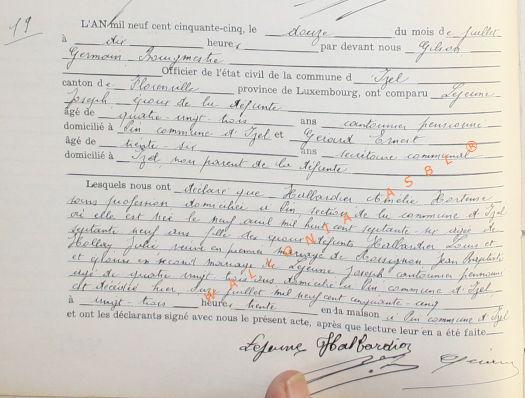 19
L'AN mil neuf cent cinquante-cinq, le douze du mois de juillet
à dix heures par devant nous Gilson
Germain, Bourgmestre
Officier de l'état civil de la commune d'Izel
canton de Florenville province de Luxembourg, ont comparu Lejeune
Joseph, époux de la défunte
âgé de quatre vingt trois ans cantonnier pensionné
domicilié à Pin commune d'Izel et Gérard Ernest
âgé de trente six ans secrétaire communal
domicilié à Izel, non parent de la défunte
Lesquels nous ont déclaré que Hallardier Amélie Hortense
sans profession domiciliée à Pin, section de la commune d'Izel
où elle est née le neuf avril mil huit cent septante six âgée de
septante neuf ans fille des époux défunts Hallardier Louis et
Julie veuve en premier mariage de Rossignon Jean Baptiste
et épouse en second mariage de Lejeune Joseph cantonnier pensionné
âgé de quatre vingt trois ans domicilié à Pin commune d'Izel
est décédée hier, juillet mil neuf cent cinquante cinq
à vingt trois heures trente en da maison à Pin commune d'Izel
et ont les déclarants signé avec nous le présent acte, après que lecture leur en a été faite
Lejeune Hallardier
WALLONIA ASBL